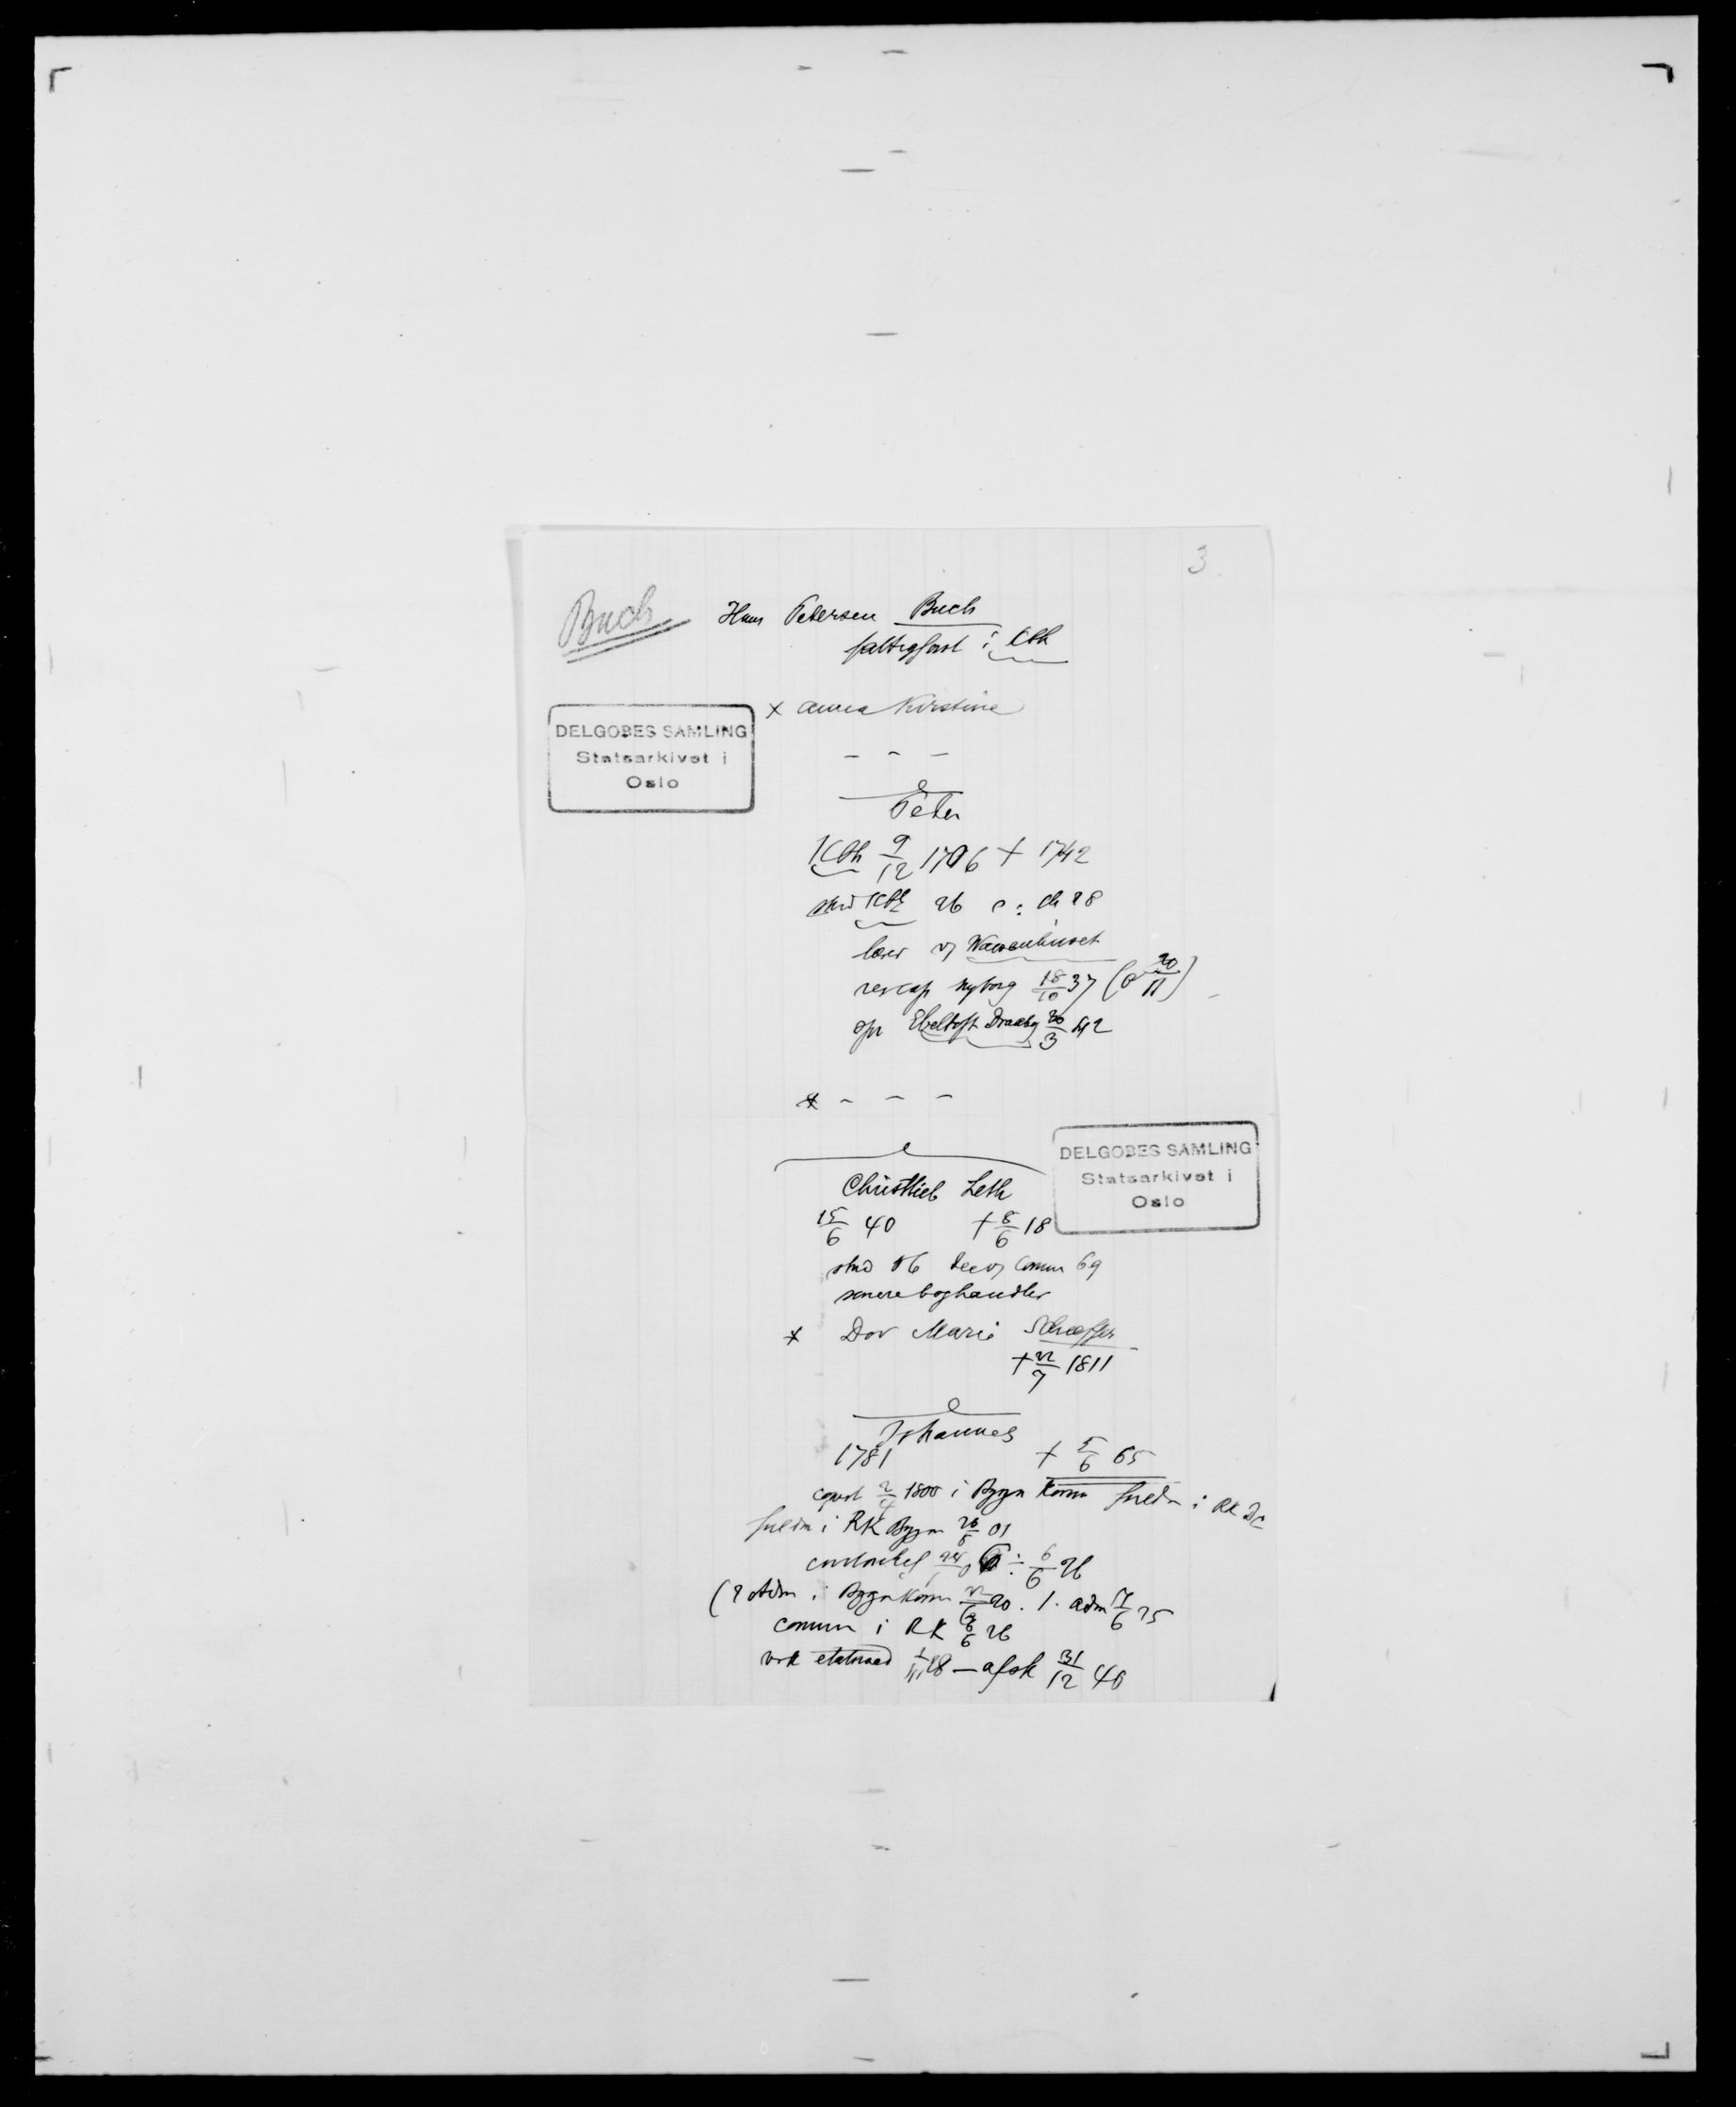 3.
Buch
Hans Petersen Buch
fattigforst i Kbh
DELGOBES SAMLING
Statsarkivet i
Oslo
x Anna Kirstine
- - -
Peter
Kbh 9/12 1706 + 1742
stud Kbh 26 c: ch 28
lærer v Waisenhuset
rescap Nyborg 18/10 37 (o 20/11)
spr Ebeltoft Draaby 30/3 42
x - - -
DELGOBES SAMLING
Statsarkivet i
Oslo
Christlieb Leth
15/6 40 + 8/6 18
stud 56 dec v comm 69
senere boghandler
x Dor Marie Schæffer
+ 22/7 1811
Johannes
1781 + 5/6 65
copist 2/4 1800 i Bygn Komm fuldm i RK DC
fuldm i RK Bygn 26/8 01
6/6 26
(2 Adm i Bygn Komm 20. 1. adm 25
comm i RK 6/6 26
virk etatsraad 28 — afsk 31/12 40